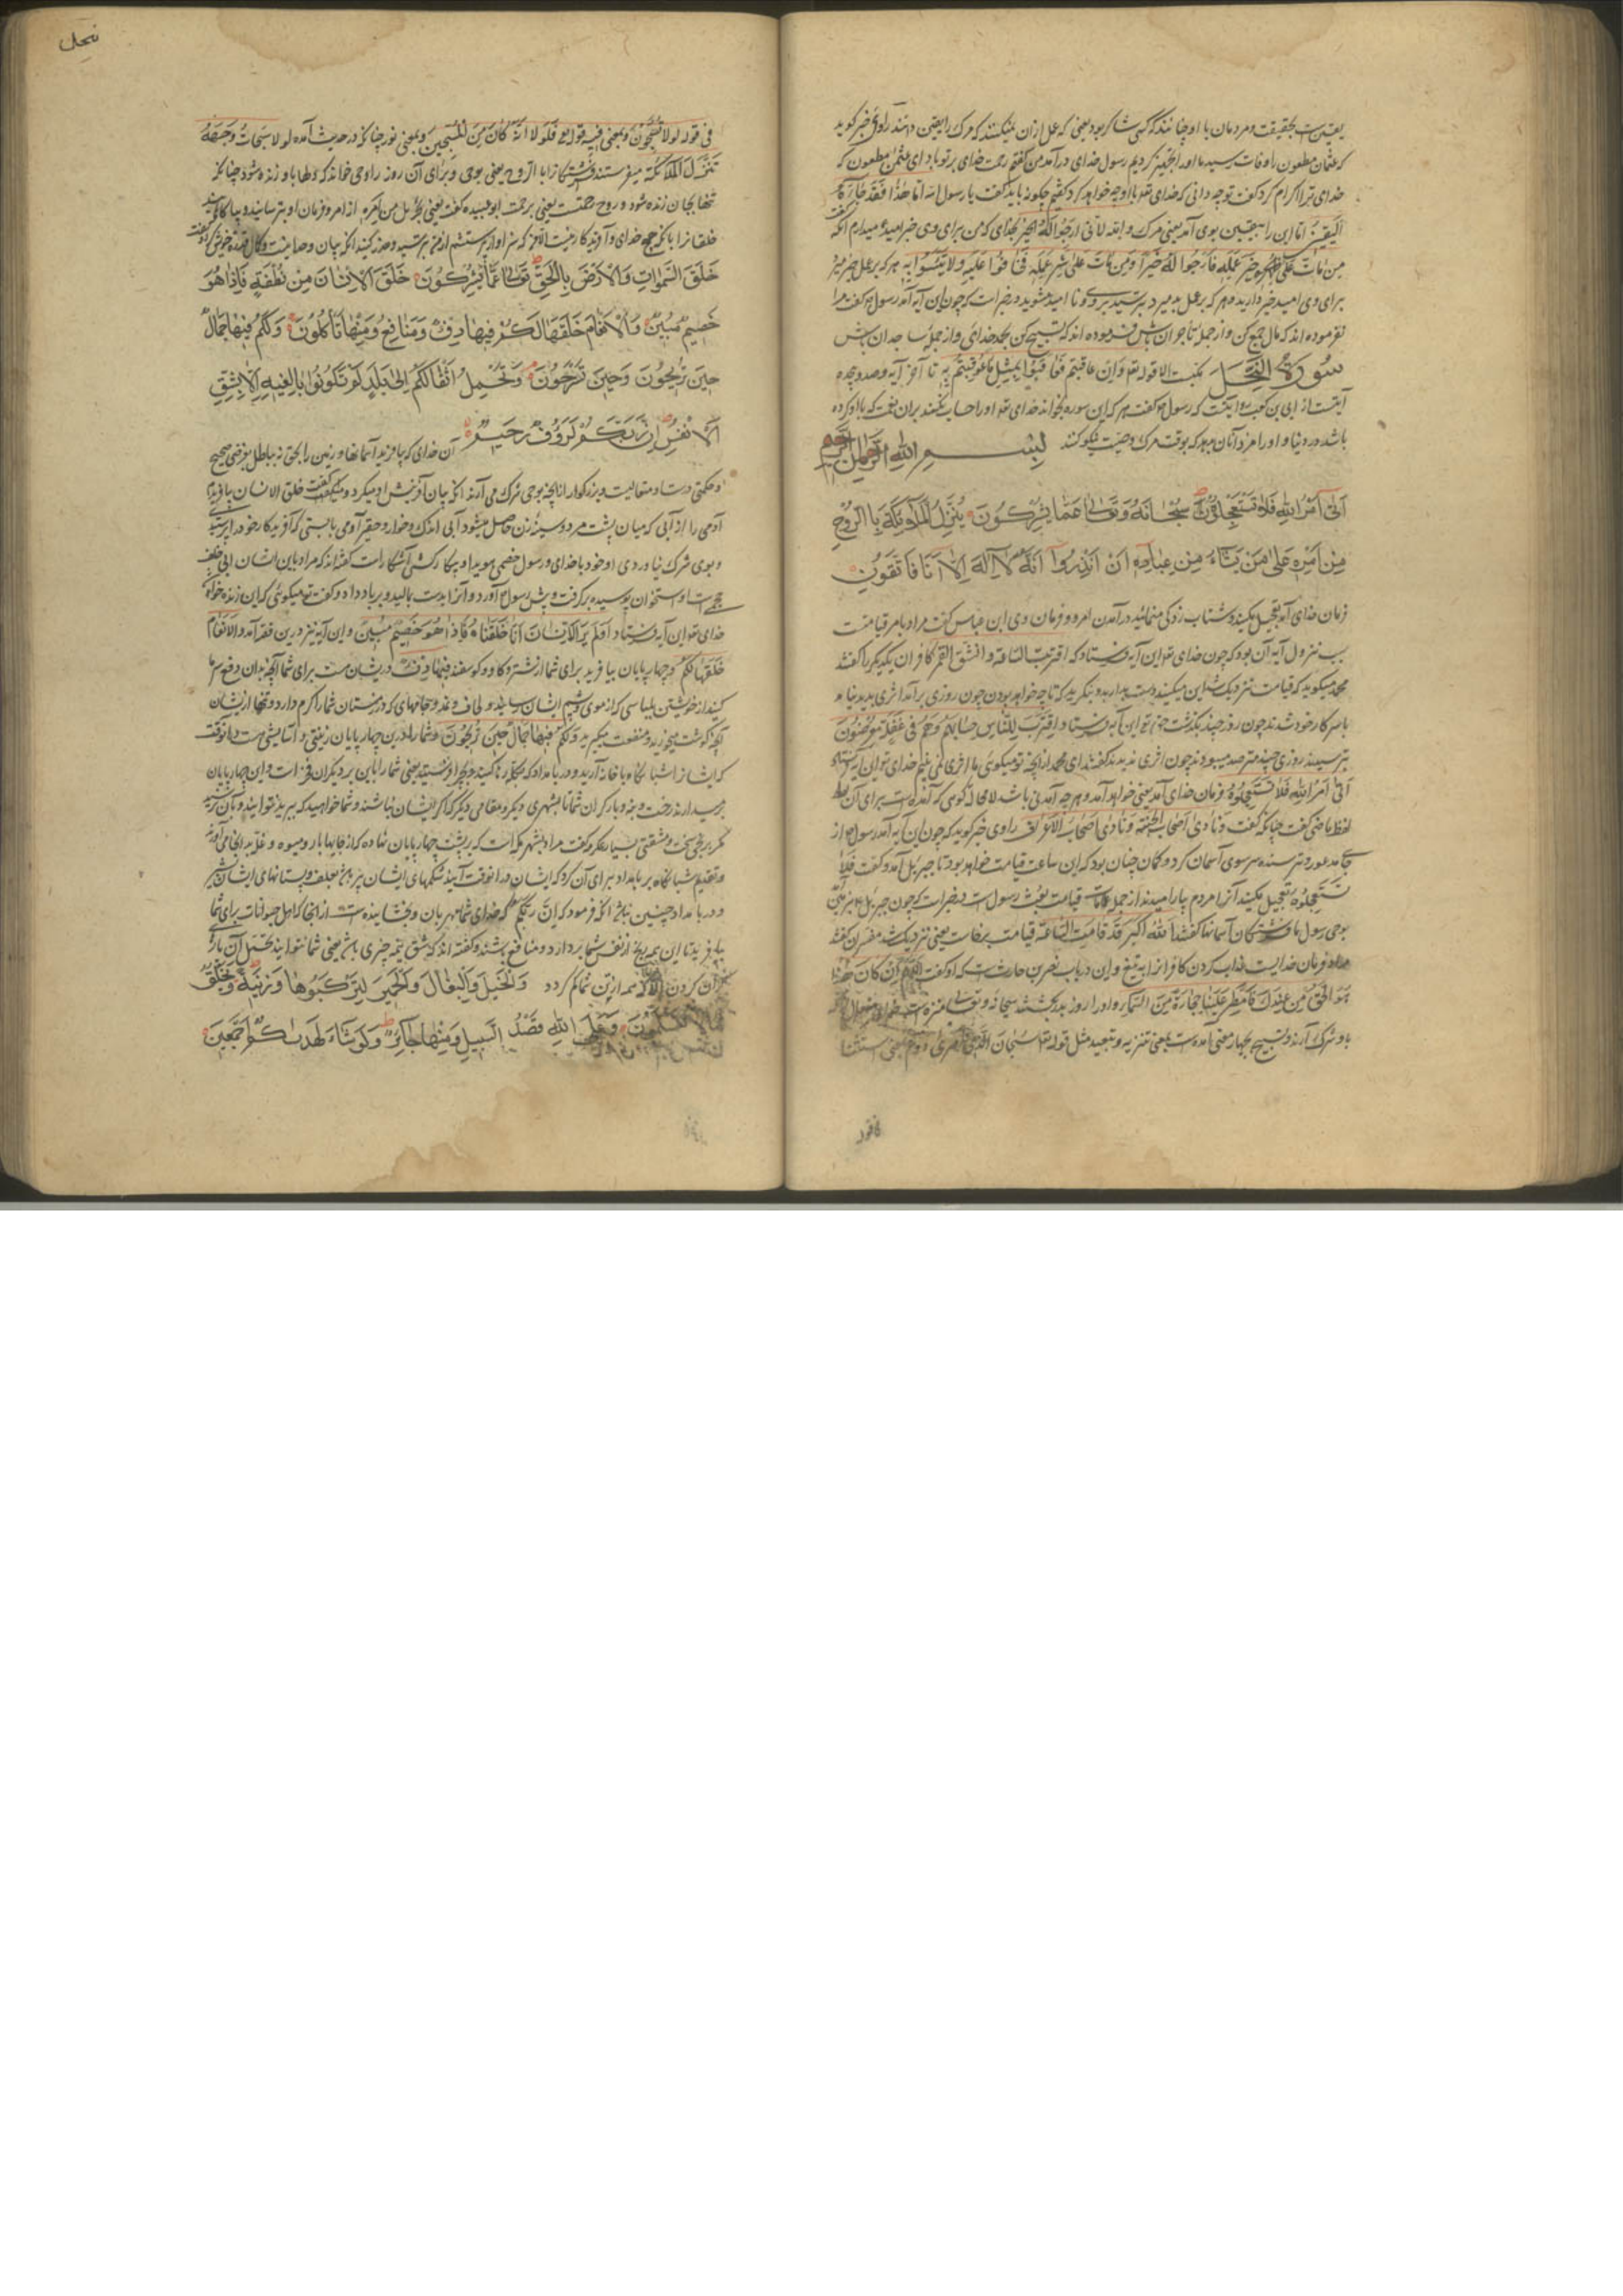 یقین است بحقیقت و مردمان با او چنانند که کسی شاک بود یعنی که عمل از آن میکنند که مرگ را یقین دانند راوی خبر گوید
که عثمان مظعون را وفات رسید ما او را تجهیز کردیم رسول خدای درآمد من گفتم رحمت خدای بر تو باد ای عثمن مظعون که
خدای ترا اکرام کرد گفت تو چه دانی که خدای تع با او چه خواهد کرد گفتم چگونه باید گفت یا رسول الله اما هذا فقد جاءه
الیقین اما این را یقین بوی آمد یعنی مرگ و الله لانی ارجو الله الخیر بخدای که من برای وی خیر امید میدارم آنگه گفت
من مات علی خیر عمله فارجوا له خیرا و من مات علی شر عمله فخافوا علیه ولا تیئسوا به هر که بر عمل خیر میرد
برای وی امید خیر دارید و هر که بر عمل بد میرد بترسید بر وی و نا امید مشوید در خبر است که چون این آیه آمد رسول گفت مرا
نفرموده اند که مال جمع کن و از جمله تاجران باش فرموده اند که تسبیح کن بحمد خدای و از جمله ساجدان باش
سورة النحل مکیت الا قوله تع وان عاقبتم فعاقبوا بمثل ما عوقبتم به تا آخر آیه و صد و
آیتست از ابی بن کعب روایت که رسول گفت هر که این سوره بخواند خدای تع او را حساب نکند بران نعمت که با او کرده
باشد در دنیا و او را مزد آنان بدهد که بوقت مرگ وصیت نیکو کنند بسم الله الرحمن الرحیم
اتی امر الله فلا تستعجلوه سبحانه وتعالی عما یشرکون ینزل الملائکة بالروح
من امره علی من یشاء من عباده ان انذروا انه لا اله الا انا فاتقون
فرمان خدای آمد تعجیل مکنید و شتاب زدگی منمائید در آمدن امر و فرمان وی ابن عباس گفت مراد بامر قیامت است
سبب نزول آیه آن بود که چون خدای تع این آیه فرستاد که اقتربت الساعة وانشق القمر کافران یکدیگر را گفتند
محمد میگوید که قیامت نزدیک شد این میکنید دست بدارید و بنگرید که تا چه خواهد بودن چون روزی برآمد اثری پدید نیامد
باسر کار خود شدند چون روز چند بگذشت حق تع این آیه فرستاد اقترب للناس حسابهم وهم فی غفلة معرضون
بترسیدند روزی چند مترصد میبودند چون اثری ندیدند گفتند ای محمد از آنچه تو میگوئی ما اثری نمی بینیم خدای تع این آیه فرستاد
اتی امر الله فلا تستعجلوه فرمان خدای آمد یعنی خواهد آمد و هر چه آمدنی باشد لا محاله گوئی که آمده است برای آن
لفظ ماضی گفت چنانکه گفت ونادی اصحاب الجنة ونادی اصحاب الاعراف راوی خبر گوید که چون این آیه آمد رسول از
جای بر سر سوی آسمان کرد و گمان چنان بود که این ساعت قیامت خواهد بود تا جبرئیل آمد و گفت فلا
تستعجلوه تعجیل مکنید آنرا مردم بیارامیدند از جمله قیامت بعث رسول است در خبر است که چون جبرئیل
بوحی رسول فرشتگان آسمانها گفتند الله اکبر قد قامت الساعة قیامت برخاست یعنی نزدیک شد مفسران گفتند
مراد فرمان خداست بعذاب کردن کافران را به تیغ و این در باب نضر بن حارث است که او گفت اللهم ان کان هذا
هو الحق من عندک فامطر علینا حجارة من السماء او را روز بدر بکشتند سبحانه وتعالی منزه است
باو شرک آرند و تسبیح بچهار معنی آمده است بمعنی تنزیه و تبعید مثل قوله تع سبحان الذی اسری دوم بمعنی استثنا
فی قوله
نحل
فی قوله لولا تسبحون وبمعنی قوله تع فلولا انه کان من المسبحین وبمعنی نور چنانکه در حدیث آمده لولا سبحات وجهه
تنزل الملائکة میفرستد فرشتگانرا با الروح یعنی بوحی و برای آن روز را وحی خواند که دلها باو زنده شود چنانکه
تنها بجان زنده شود و روح رحمتست یعنی برحمت ابو عبیده گفت یعنی بجبرئیل من امره از امر و فرمان او بترسانید و بیاگاهانید
خلقانرا بآنکه خدای و آفریدگار نیست الا من که سزاوار پرستشم از من بترسید و حذر کنید آنکه بیان وحدانیت و کمال قدرت خویش کرد و گفت
خلق السموات والارض بالحق تعالی عما یشرکون خلق الانسان من نطفة فاذا هو
خصیم مبین والانعام خلقها لکم فیها دفء ومنافع ومنها تأکلون ولکم فیها جمال
حین تریحون وحین تسرحون وتحمل اثقالکم الی بلد لم تکونوا بالغیه الا بشق
الانفس ان ربکم لرؤف رحیم آن خدای که بیافرید آسمانها و زمین را بحق نه بباطل بغرضی صحیح
و حکمتی درست او متعالیست و بزرگوار از آنچه بوی شرک می آرند آنکه بیان آفرینش آدمی کرد و گفت خلق الانسان بیافرید
آدمی را از آبی که میان پشت مرد و سینه زن حاصل میشود آبی اندک و خوار و حقیر آدمی بایستی که آفریدگار خود را پرستیدی
و بوی شرک نیاوردی او خود با خدای و رسول خصمی هویدا و پیکارکشی آشکار است گفته اند که مراد باین انسان ابی خلف
جمحی است او استخوان پوسیده برگرفت و پیش رسول آورد و آنرا بدست بمالید و بر باد داد و گفت تو میگوئی که این زنده خواهد شد
خدای تع این آیه فرستاد اولم یر الانسان انا خلقناه فاذا هو خصیم مبین و این آیه نیز درین قصه آمد والانعام
خلقها لکم و چهارپایان بیافرید برای شما از شتر و گاو و گوسفند فیها دفء در ایشان هست برای شما آنچه بدان دفع سرما
کنید از خویشتن بلباسی که از موی و پشم ایشان سازند و لحاف و جامهای که در زمستان شما را گرم دارد و منها از ایشان
آنچه گوشت میخورید و منفعت میگیرید ولکم فیها جمال حین تریحون و شما را در این چهارپایان زینتی و آسایشی هست در آن وقت
که ایشانرا شبانگاه با خانه آرید و در بامداد که بچراگاه فرستید یعنی شما را باین بر دیگران فخر است و این چهارپایان
بردارند رخت و بنه و بار گران شما تا بشهری دیگر و مقامی دیگر که اگر ایشان نباشند و شما خواهید که ببرید نتوانید و بآن نرسید
مگر برنجی سخت و مشقتی بسیار عکرمه گفت مراد بشهر مکه است که بر پشت چهارپایان نهاده که از جایها بار و میوه و غله بدانجا می آورند
و تقدیم شبانگاه بر بامداد برای آن کرد که ایشان در آن وقت آیند شکمهای ایشان پر باشد بعلف و پستانهای ایشان بشیر
و در بامداد چنین نباشد آنکه فرمود که ان ربکم که خدای شما مهربان و بخشاینده است از آنجا که اهل حیوانات برای شما
بیافرید تا این همه رنج از نفس شما بردارد و منافع باشند و گفته اند که شق نیمه چیزی باشد یعنی شما نتوانید تحمل آن بار
گران کردن الا همه از تن شما کم گردد والخیل والبغال والحمیر لترکبوها وزینة ویخلق
ما لا تعلمون وعلی الله قصد السبیل ومنها جائر ولو شاء لهداکم اجمعین